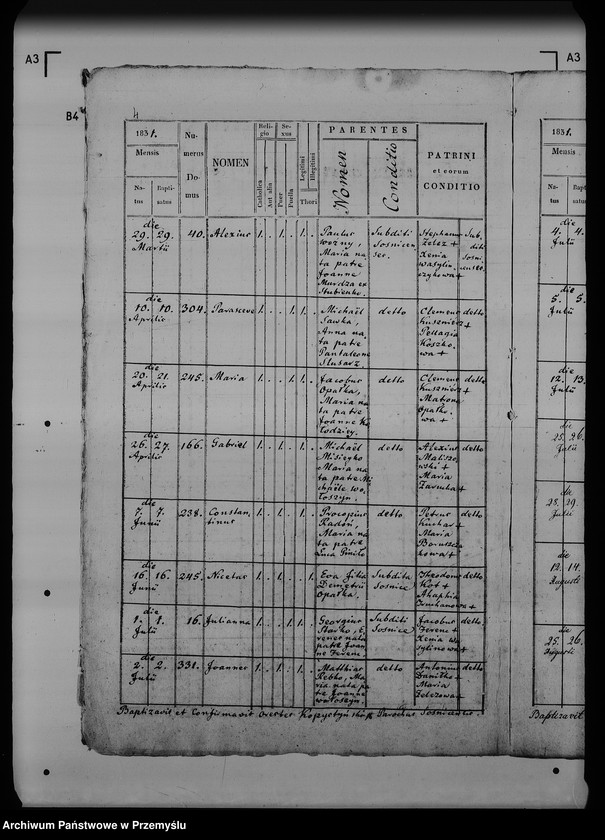 A3
A3
B4
4
1831.
Mensis
Na-
tus
Bapti-
satus
Nu-
merus
Do-
mus
NOMEN
Reli-
gio
Catholica
Aut alia
Se-
xus
Puer
Puella
Legitimi
Illegitimi
Thori
PARENTES
Nomen
Conditio
PATRINI
et eorum
CONDITIO
die
29. 29.
Martii
40. Alexius 1. . 1. . 1. .
Paulus
Wozny,
Maria na-
ta patre
Joanne
Murdza ex
Stubienko.
Subditi
Sosnicen
ses.
Stephanus
Zelez +
Xenia
Wasylin
czykowa +
Sub,
diti
Sosni,
censes.
die
10. 10.
Aprilis
304. Parasceve 1. . . 1. 1. .
Michaël
Sawka,
Anna na-
ta patre
Pantaleone
Slusarz.
detto
Clemens
Kuszmierz +
Pellagia
Koszko,
wa +
detto
die
20. 21.
Aprilis
245. Maria 1. . . 1. 1. .
Jacobus
Opałka,
Maria na
ta patre
Joanne Ko
łodziey.
detto
Clemens
Kuszmierz +
Matrona
Opałko,
wa +
detto
die
26. 27.
Aprilis
166. Gabriel 1. . 1. . 1. .
Michaël
Misieyko
Maria na
ta patre Mi
chaële Wo,
łoszyn.
detto
Alexius
Maliszew
wski +
Maria
Zarucha +
detto
die
7. 7.
Junii
238. Constan,
tinus 1. . 1. . 1. .
Procopius
Radoń,
Maria na
ta patre
Luca
detto
Petrus
Kuchar +
Maria
kowa +
detto
die
16. 16.
Junii
245. Nicetas 1. . 1. . . 1.
Eva filia
Demetrii
Opałka.
Subdita
Sosnice
Theodorus
Kot +
Ahaphia
detto
die
1. 1.
Julii
16. Julianna 1. . . 1. 1. .
Georgius
nata
patre Joan
ne Ferenc.
Subditi
Sosnice
Jacobus
Ferenc +
Xenia Wa
sylinowa +
detto.
die
2. 2.
Julii
331. Joannes 1. . 1. . 1. .
Matthias
Rebko, Ma
ria nata pa
tre Joanne
Wołoszyn.
detto
Antonius
Danitko +
Maria
Zelezowa +
detto
Baptizavit et Confirmavit Parochus Sosnicensis.
1831.
Mensis
Na-
tus
Bapti-
satus
die
4. 4.
Julii
die
5. 5.
Julii
die
12. 13.
Julii
die
25. 26.
Julii
die
28. 29.
Julii
die
13. 14.
Augusti
die
25. 26.
Augusti
Baptizavit
Archiwum Państwowe w Przemyślu